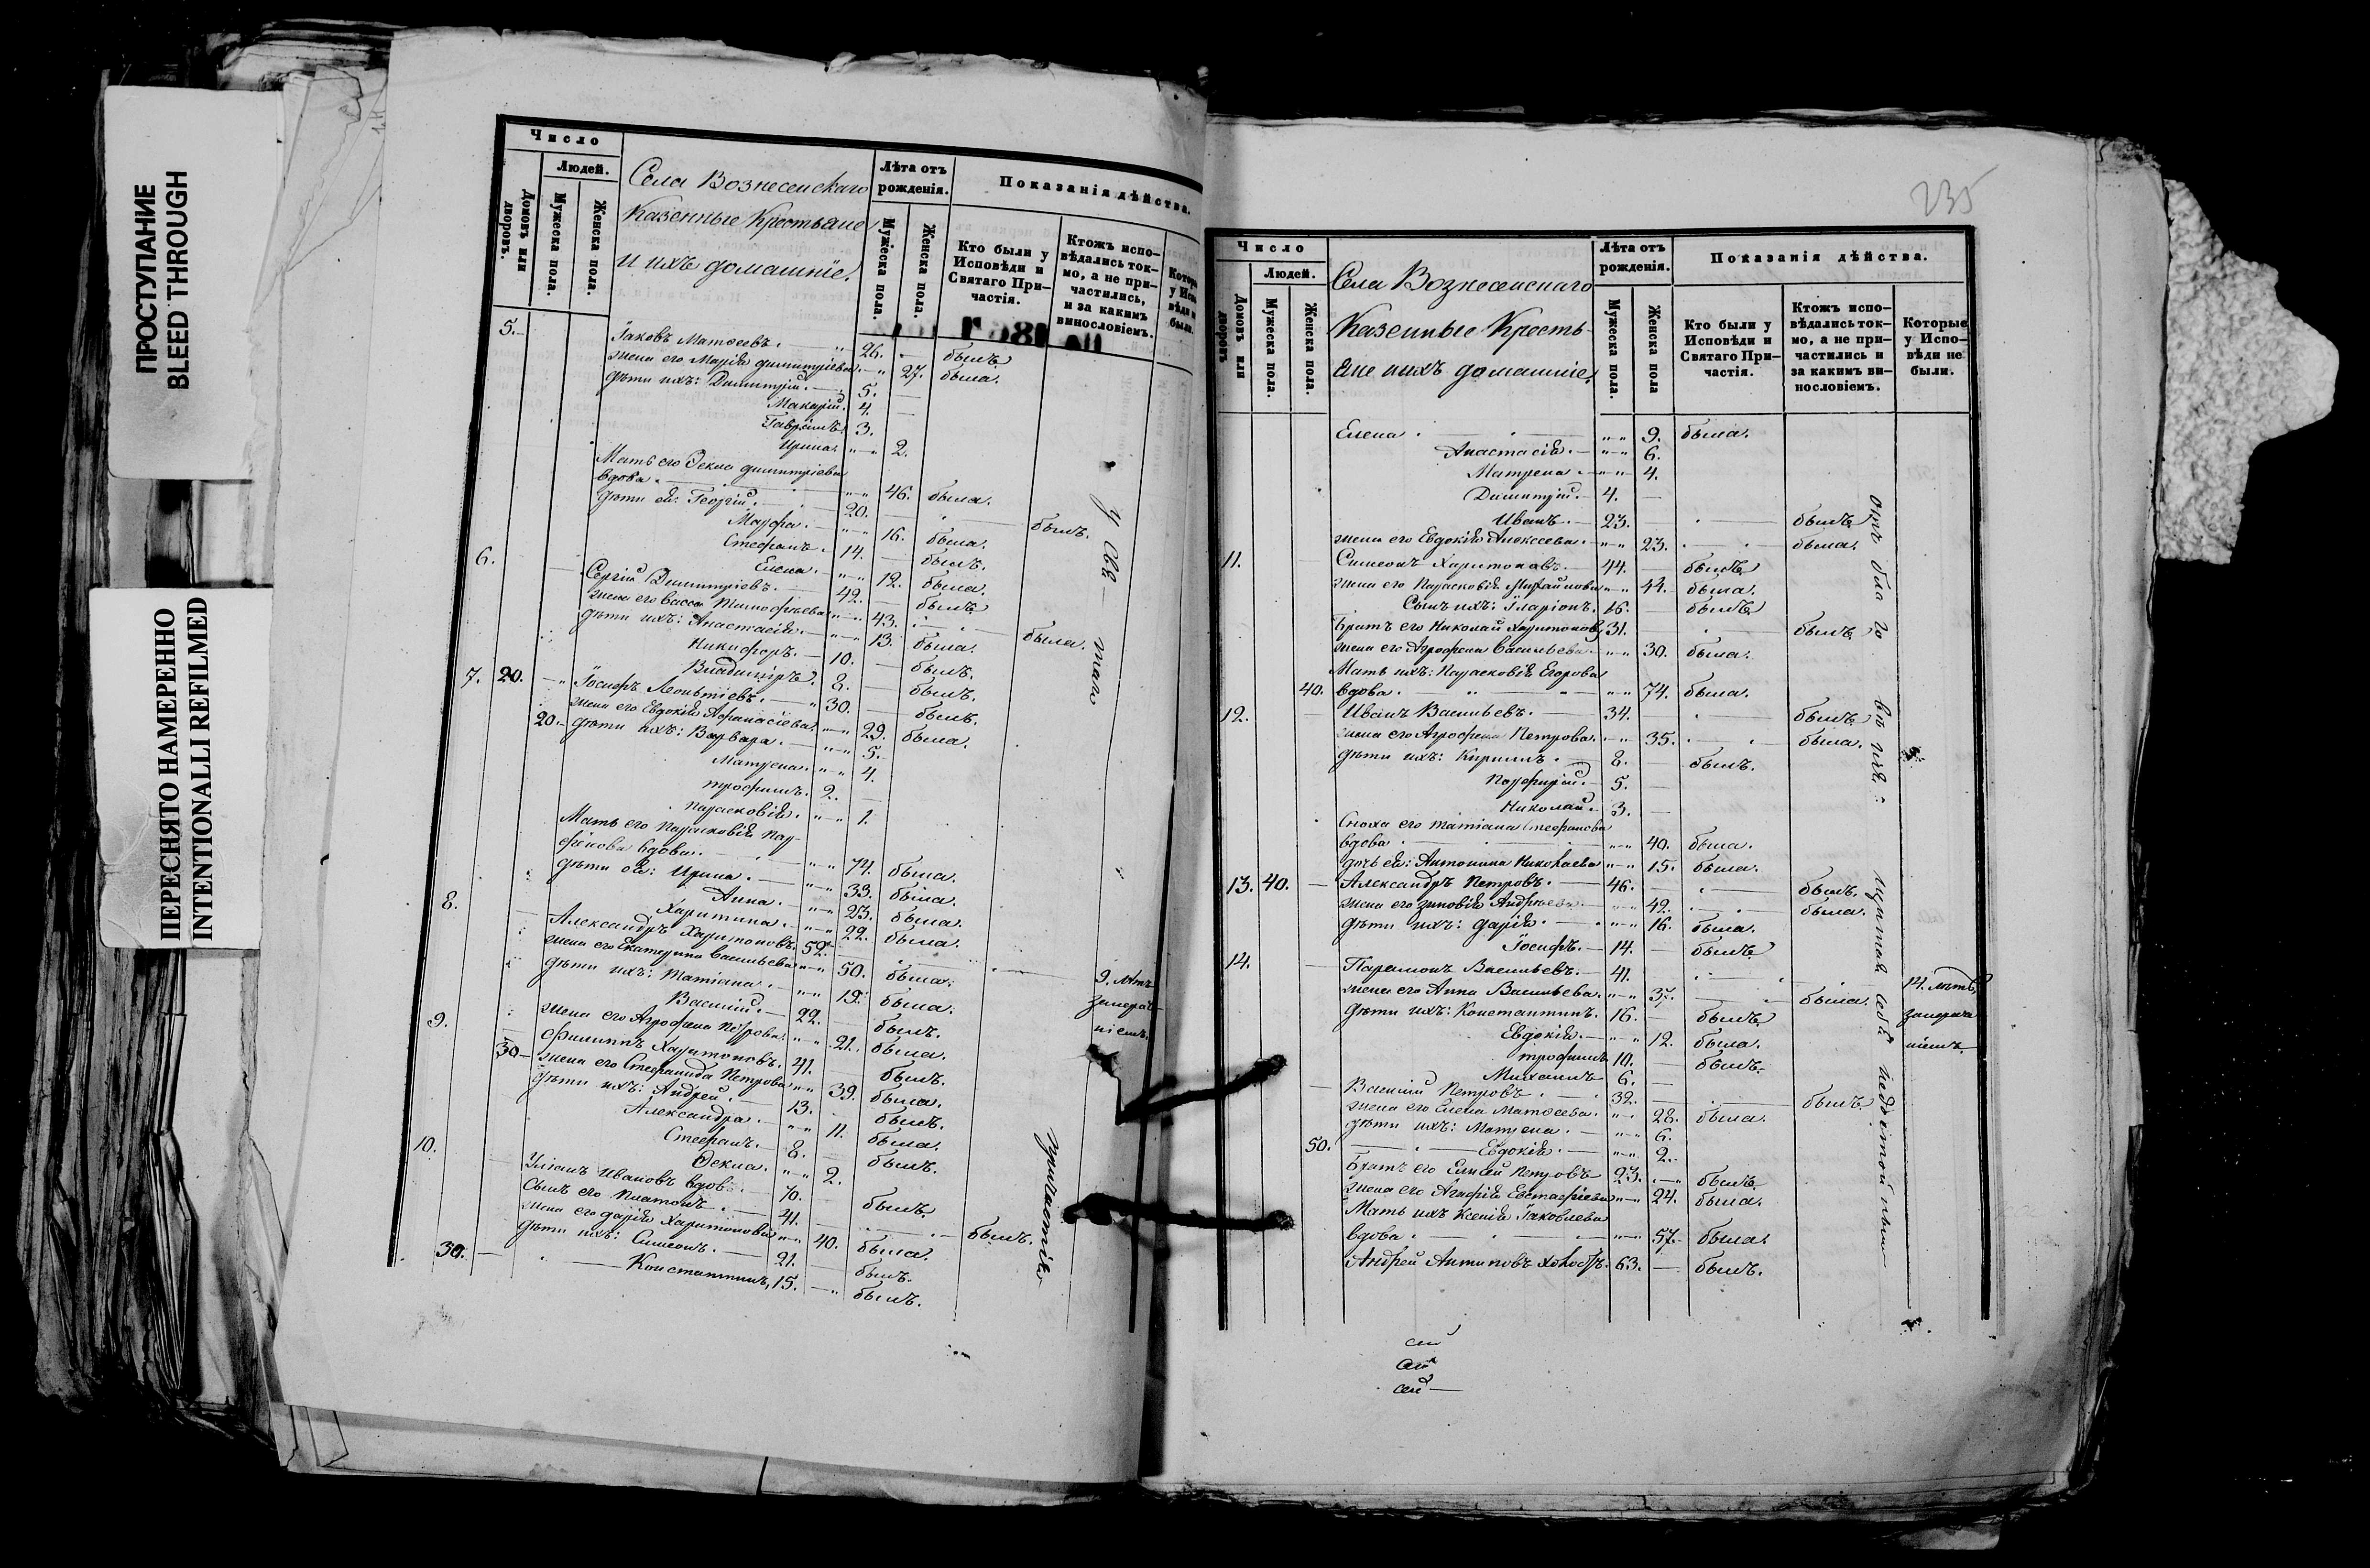 ПРОСТУПАНИЕ
BLEED THROUGH
ПЕРЕСНЯТО НАМЕРЕННО
INTENTIONALLI REFILMED
Число
Людей.
Домовъ или дворовъ.
Мужеска пола.
Женска пола.
Села Вознесенскаго
Казенные Крестьяне
и ихъ домашніе.
Лѣта отъ рожденія.
Мужеска пола.
Женска пола.
Показанія дѣйства.
Кто были у Исповѣди и Святаго Причастія.
Ктожъ исповѣдались токмо, а не причастились, и за какимъ винословіемъ.
5. Іаковъ Матѳеевъ. 26. былъ
жена его Марія Димитріева. 27. была.
дѣти ихъ: Димитрій. 5.
Макарій. 4.
Гавріилъ. 3.
Ирина. 2.
Мать его Ѳекла Димитріева
вдова. 46. была.
дѣти ея: Георгій. 20. былъ.
Марфа. 16. была.
Стефанъ. 14. былъ.
Елена. 12. была.
6. Сергій Димитріевъ. 42. былъ
жена его Васса Тимофѣева 43. была.
дѣти ихъ: Анастасія. 13. была.
Никифоръ. 10. былъ.
Владиміръ. 8. былъ.
7. 20. Іосифъ Леонтіевъ. 30. былъ.
жена его Евдокія Афанасіева. 29. была.
20. дѣти ихъ: Варвара. 5.
Матрена. 4.
Трофимъ. 2.
Парасковія. 1.
Мать его Парасковія Пар-
фенова вдова. 74. была.
дѣти ея: Ирина. 33. была.
Анна. 23. была.
Харитина. 22. была.
8. Александръ Харитоновъ. 52.
9. лѣтъ
жена его Екатерина Васильева 50. была.
дѣти ихъ: Татіана. 19. была.
Василій. 22. былъ.
жена его Агрофена Петрова. 21. была.
9. Филиппъ Харитоновъ. 41. былъ.
30 жена его Стефанида Петрова 39. была.
дѣти ихъ: Андрей. 13. былъ.
Александра. 11. была.
Стефанъ. 8. былъ.
Ѳекла. 2.
10. Уліанъ Ивановъ вдовъ 70. былъ.
Сынъ его Платонъ. 41. былъ.
жена его Дарія Харитонова 40. была.
дѣти ихъ: Симеонъ. 21. былъ.
30. Константинъ, 15. былъ.
235
Число
Людей.
Домовъ или дворовъ
Мужеска пола.
Женска пола.
Села Вознесенскаго
Казенные Кресть-
яне и ихъ домашніе.
Лѣта отъ рожденія.
Мужеска пола.
Женска пола
Показанія дѣйства.
Кто были у Исповѣди и Святаго Причастія.
Ктожъ исповѣдались токмо, а не причастились и за какимъ винословіемъ.
Которые у Исповѣди не были.
Елена. 9. была.
Анастасія. 6.
Матрена. 4.
Димитрій. 4.
Иванъ. 23. былъ
жена его Евдокія Алексеева. 23. была.
11. Симеонъ Харитоновъ. 44. былъ
жена его Парасковія Михайлова 44. была.
Сынъ ихъ: Иларіонъ. 16. былъ
Братъ его Николай Харитоновъ 31. былъ
жена его Агрофена Васильева 30. была.
Мать ихъ: Парасковія Егорова
40. вдова. 74. была.
12. Иванъ Васильевъ. 34. былъ
жена его Агрофена Петрова. 35. была.
дѣти ихъ: Кириллъ. 8. былъ.
Порфирій. 5.
Николай. 3.
Сноха его Татіана Стефанова
вдова 40. была.
дочь ея: Антонина Николаева 15. была.
13. 40. Александръ Петровъ. 46. былъ.
жена его Зиновія Андреева. 42. была.
дѣти ихъ: Дарія. 16. была.
Іосифъ. 14. былъ
14. Парамонъ Васильевъ. 41. 14. лѣтъ
жена его Анна Васильева. 37. была.
дѣти ихъ: Константинъ. 16. былъ.
Евдокія. 12. была.
Трофимъ 10. былъ.
Михаилъ 6.
Василій Петровъ. 32. былъ
жена его Елена Матѳеева. 28. была.
дѣти ихъ: Матрена. 6.
50. Евдокія. 2.
Братъ его Елисей Петровъ 23. былъ
жена его Агафія Евстафіева 24. была.
Мать ихъ Ксенія Іаковлева
вдова 57. была.
Андрей Антиповъ холостъ. 63. былъ.